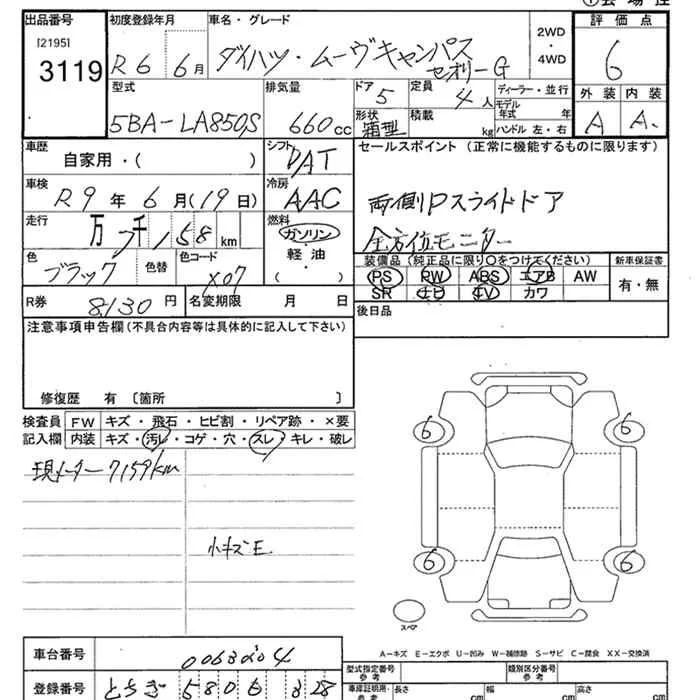 出品番号
[2195]
3119
初度登録年月
R6 6月
車名・グレード
ダイハツ・ムーヴキャンバス
セオリーG
2WD
・
4WD
評価点
6
外装 内装
A A
型式
5BA-LA850S
排気量
660cc
ドア
5
形状
箱型
定員
4人
積載
kg
ディーラー・並行
モデル年式 年
ハンドル 左・右
車歴
自家用・( )
シフト
DAT
車検
R9年6月(19日)
冷房
AAC
走行
万 7千158km
燃料
ガソリン
軽油
( )
色
ブラック
色替
色コード
X07
R券
8130円
名変期限 月 日
セールスポイント (正常に機能するものに限ります)
両側Pスライドドア
全方位モニター
装備品 (純正品に限り○をつけてください)
新車保証書
PS PW ABS エアB AW
有・無
SR ナビ TV カワ
後日品
注意事項申告欄(不具合内容等は具体的に記入して下さい)
修復歴 有 〔箇所 〕
検査員
記入欄
FW キズ・飛石・ヒビ割・リペア跡・×要
内装 キズ・汚レ・コゲ・穴・スレ・キレ・破レ
現メーター7159km
小キズE
6 6
6 6
スペア
A-キズ E-エクボ U-凹み W-補修跡 S-サビ C-腐食 XX-交換済
車台番号
登録番号
とちぎ 580
型式指定番号
参考
類別区分番号
参考
車庫証明用
参考
長さ cm
幅 cm
高さ cm